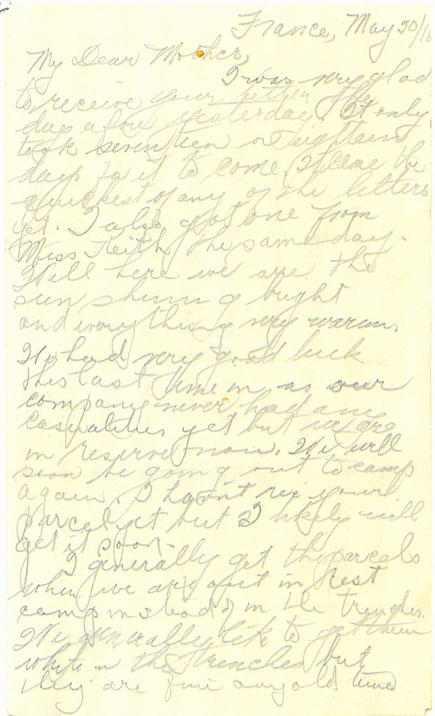 France, May 20/16
My Dear Mother,
I was very glad
to receive your letter the
day afou yesterday. It only
took seventeen or eighteen
days for it to come. It came the
quickest of any of the letters
yet. I also got one from
Miss Keith the same day.
Well here we are the
sun shining bright
and everything very warm.
We had very good luck
this last time in as our
company never had any
casualties yet but we are
in reserve now. We will
soon be going out to camp
again. I hav'nt rec your
parcel yet but I likely will
get it soon.
I generally get the parcels
when we are out in rest
camp instead of in the trenches.
We generally like to get them
while in the trenches but
they are fine any old time